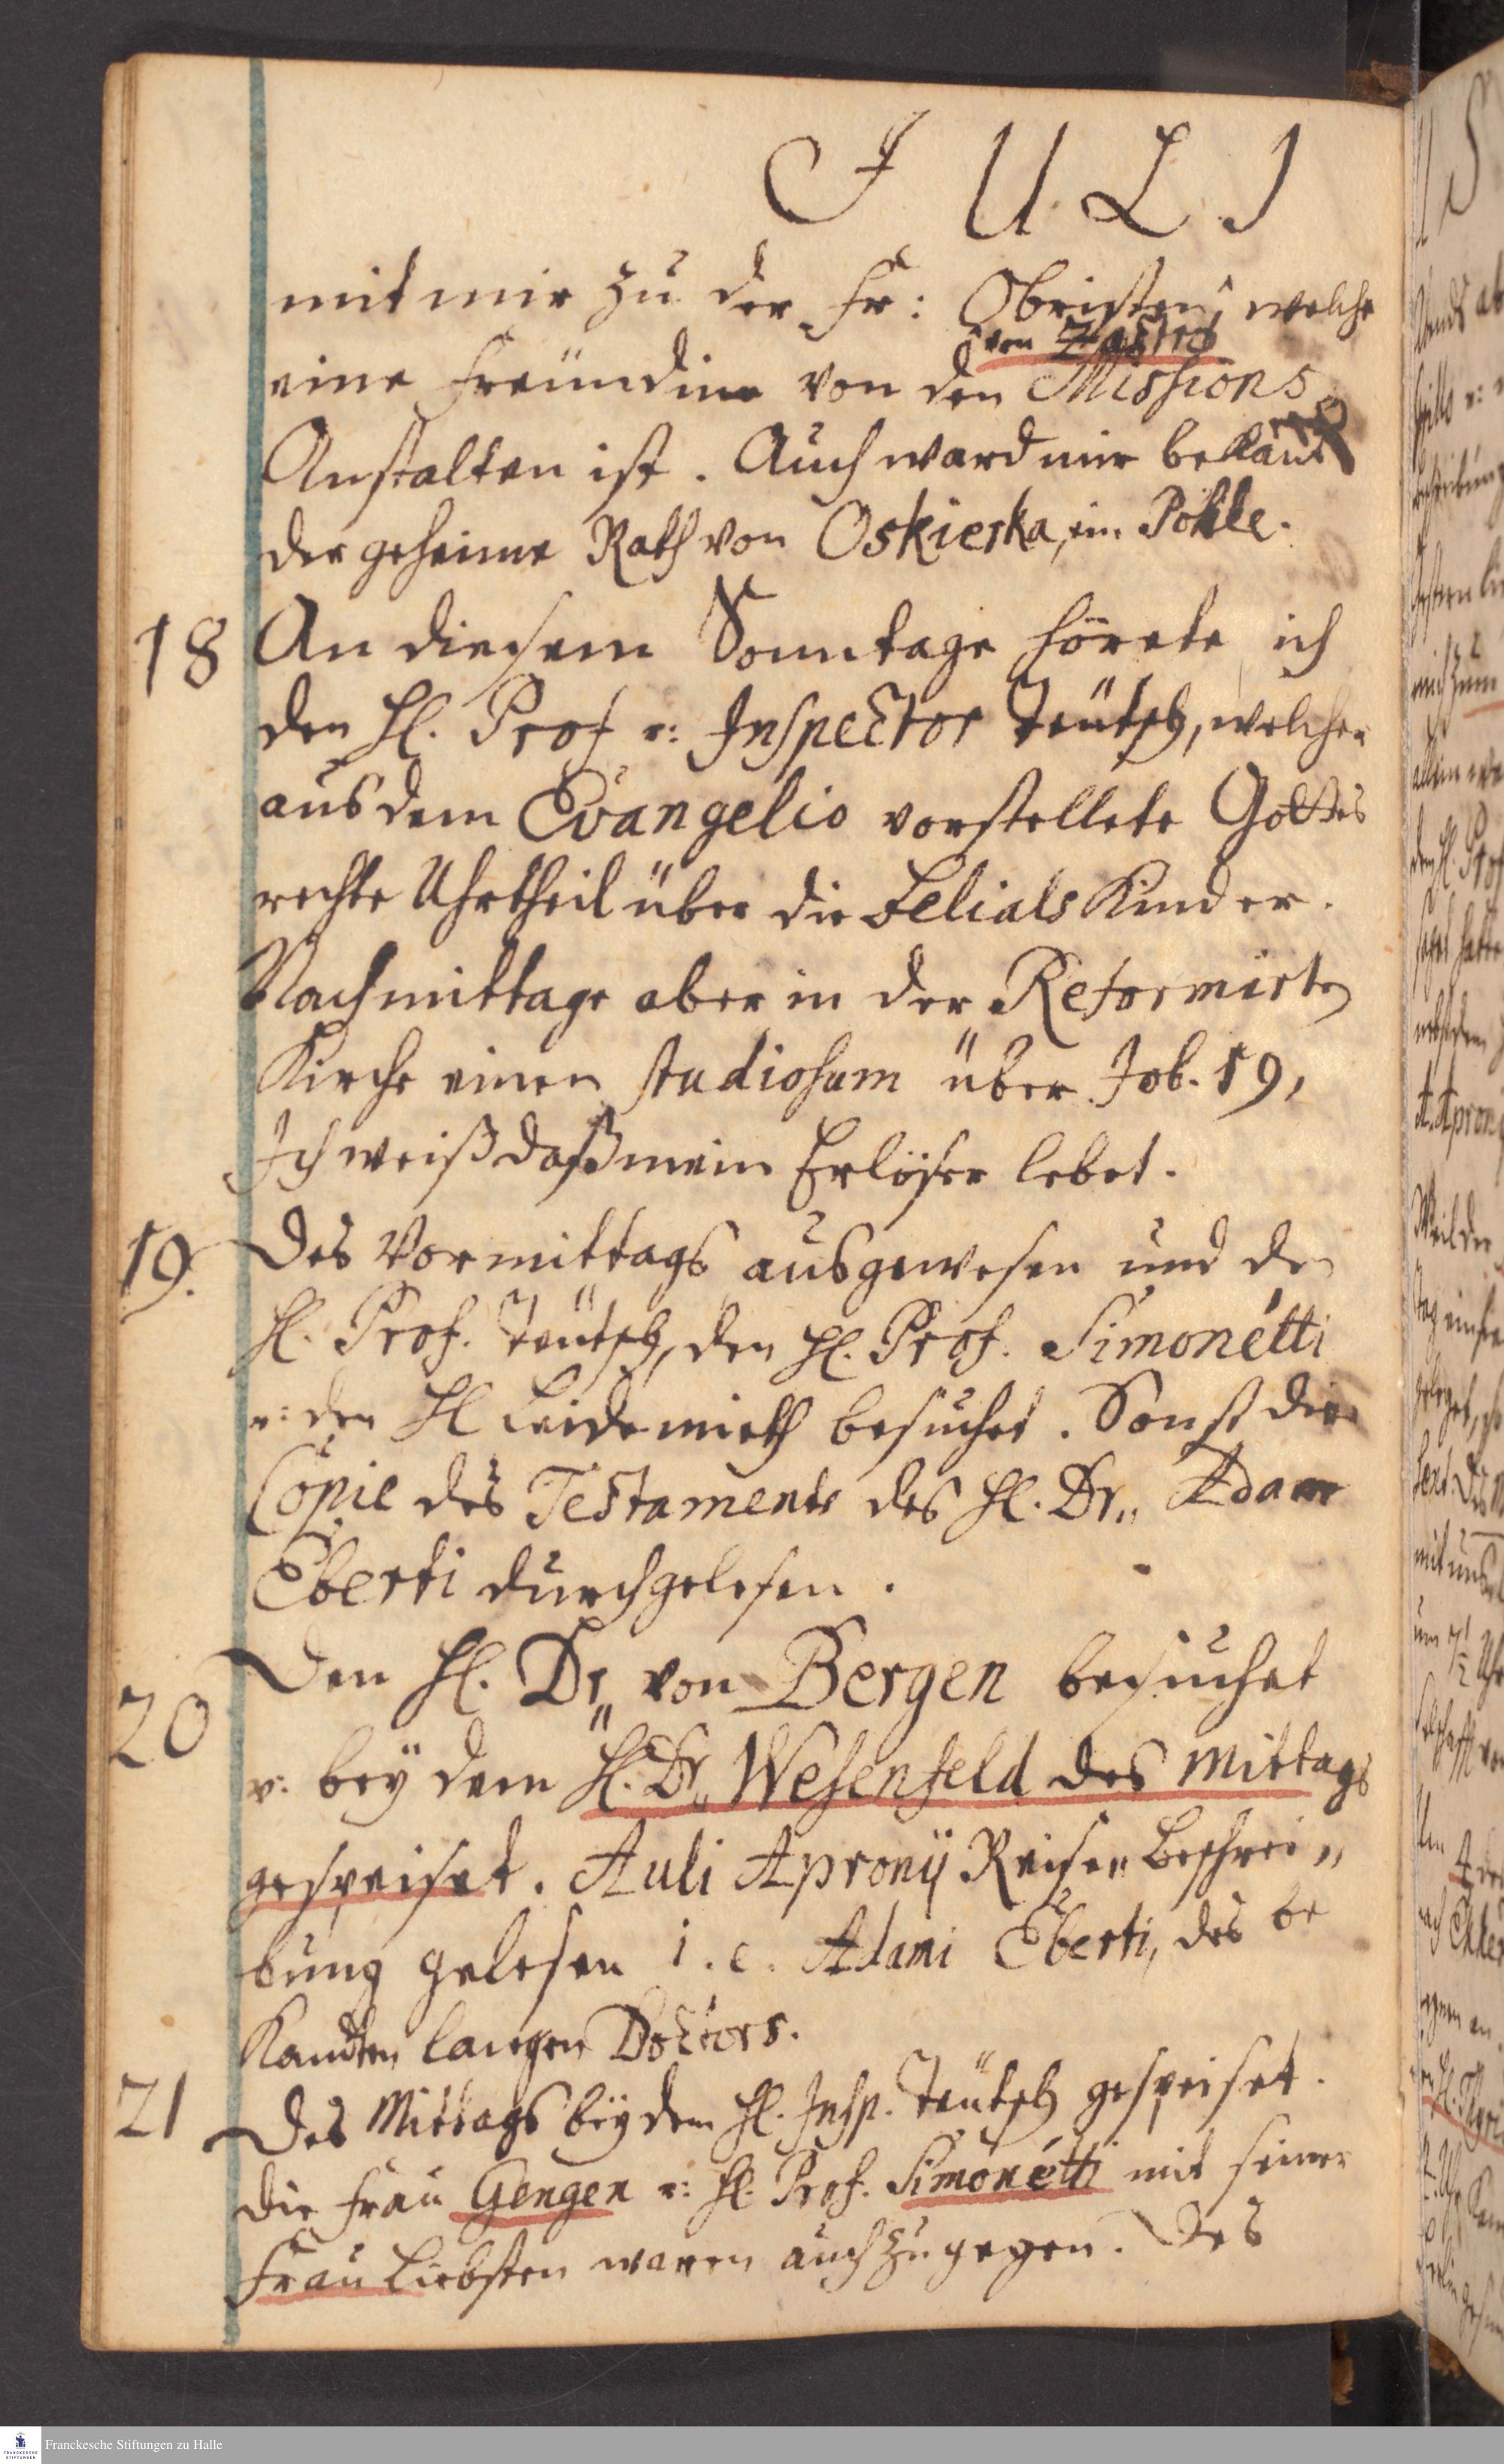 JULI
mit mir zu der Fr: Obristen, welche
von Zastro
eine Freundinn von den Missions
Anstalten ist. Auch ward mir bekant
der geheime Rath von Oskierka, ein Pohle.
18 An diesem Sonntage hörete ich
den H. Prof u: Inspector Teütsch, welcher
aus dem Evangelio vorstellete Gottes
rechte Uhrtheil über die Belials Kinder.
Nachmittage aber in der Reformirten
Kirche einen studiosum über Job. 19,
Ich weiß daß mein Erlöser lebet.
19. Des Vormittags ausgewesen und den
H. Prof. Teütsch, den H. Prof. Simonetti
u: den H besuchet. Sonst die
Copie des Testaments des H. Dr. Adam
Eberti durchgelesen.
20 Den H. Dr. von Bergen besuchet
u: bey dem H. Dr. Wesenfeld des Mittags
gespeiset. Auli Apronij Reise„ Beschrei„
bung gelesen i.e. Adami Eberti, des be
kandten langen Doctors.
21 Des Mittags bey dem H. Insp. Teütsch gespeiset.
Die Frau Gengen u: H. Prof. Simonetti mit seiner
Frau Liebsten waren auch zugegen. Des
Franckesche Stiftungen zu Halle